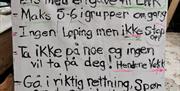 - Maks 5-6 i grupper omgang
- Ingen löping men ikke Stopp
- Ta ikke på noe og ingen
vil ta på deg! Hendene Vekk
- Gå i riktig rettning, Spør